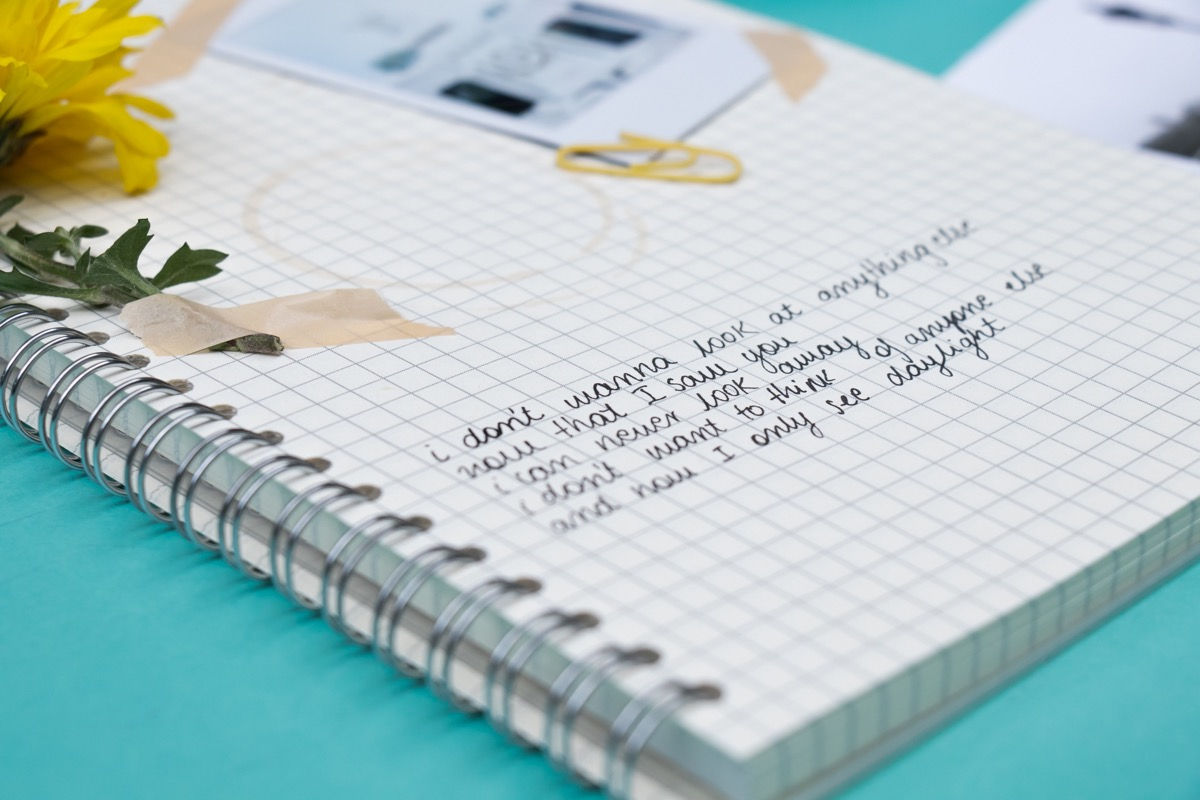 i don't wanna look at anything else
now that I saw you
i can never look away
i don't want to think of anyone else
and now I only see daylight